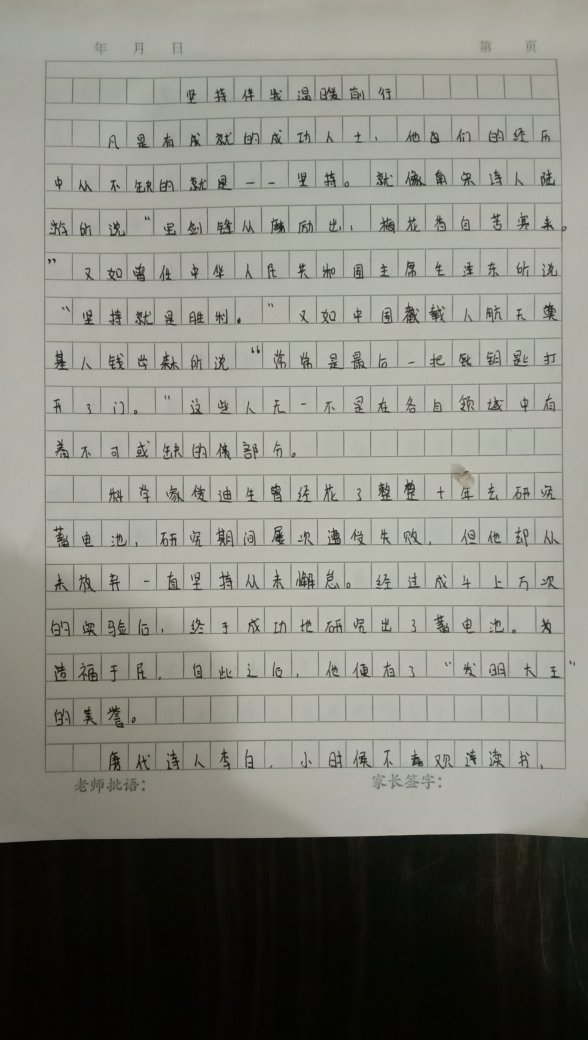 年 月 日 第 页
坚持伴我温暖前行
凡是有成就的成功人士,他们的经历
中从不缺的就是——坚持。就像南宋诗人陆
游所说“宝剑锋从磨励出,梅花香自苦寒来。
”又如曾任中华人民共和国主席毛泽东所说
“坚持就是胜利。”又如中国载人航天奠
基人钱学森所说“常常是最后一把钥匙打
开了门。”这些人无一不是在各自领域中有
着不可或缺的部分。
科学家爱迪生曾经花了整整十年去研究
蓄电池,研究期间屡次遭受失败,但他却从
未放弃一直坚持从未懈怠。经过成千上万次
的实验后,终于成功地研究出了蓄电池。为
造福于民,自此之后,他便有了“发明大王”
的美誉。
唐代诗人李白,小时候不喜欢读书,
老师批语: 家长签字: